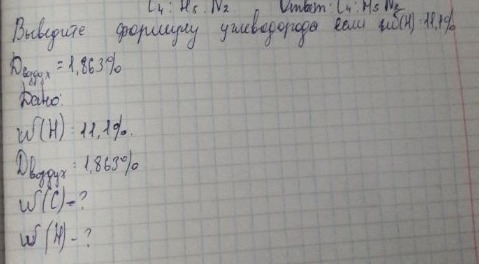 C₄ : H₅ : N₂ Ответ: C₄ : H₅ N₂
Выведите формулу углеводорода если w(H) : 11,1%
Dвоздух = 1,863%
Дано:
w(H) : 11,1%.
Dвоздух : 1,863%
w(C) - ?
w(H) - ?